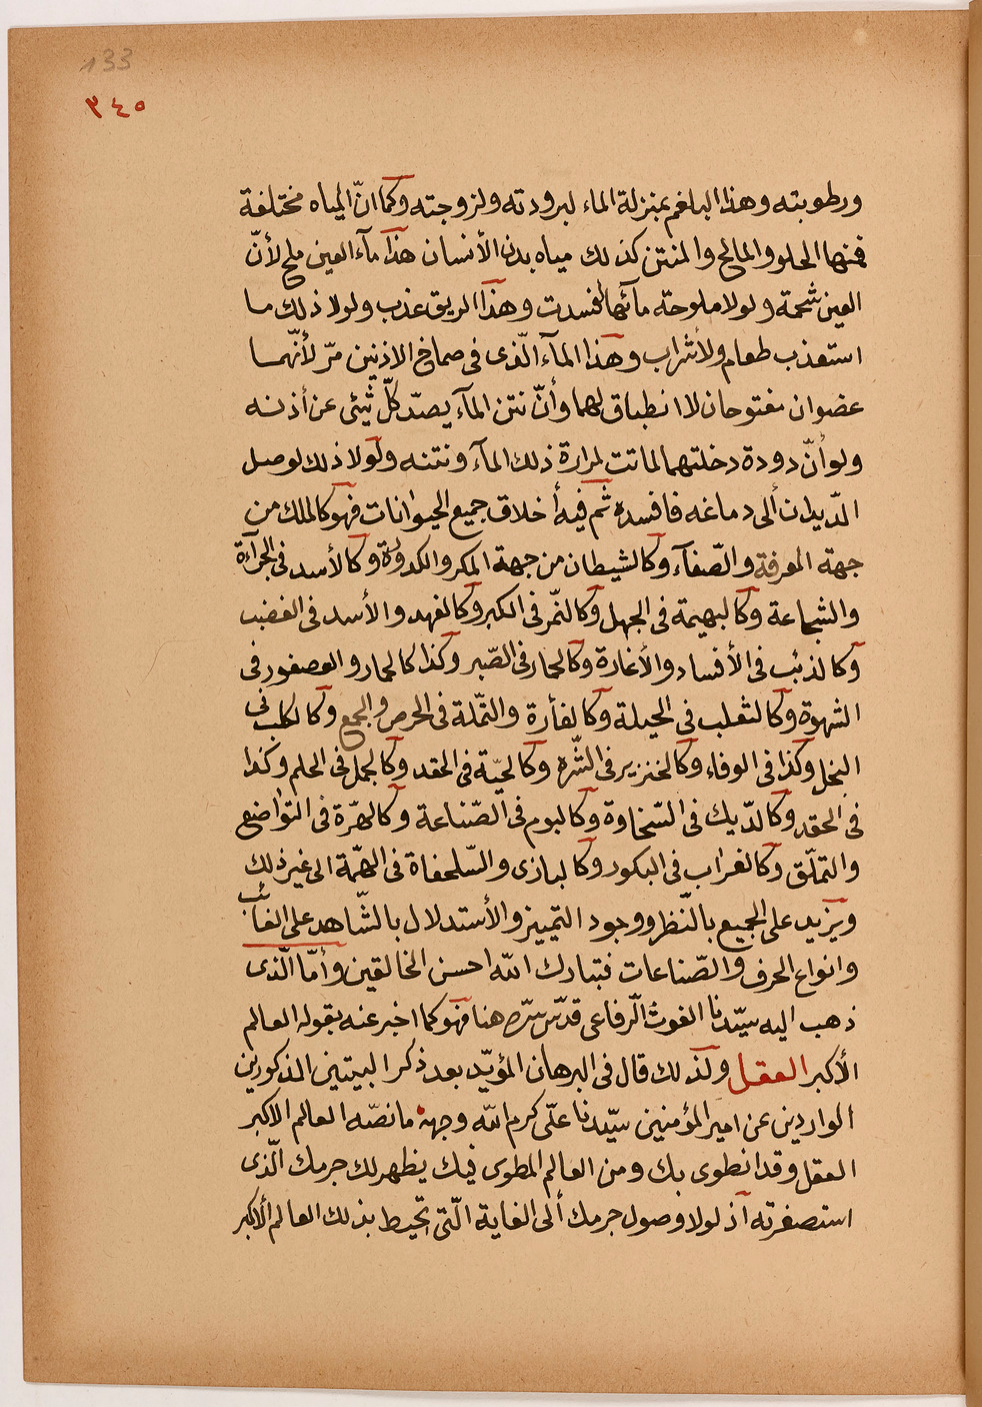 133
٣٤٥
ورطوبته وهذا البلغم بمنزلة الماء لبرودته ولزوجته وكما انّ المياه مختلفة
فمنها الحلو والمالح والمنتن كذلك مياه بدن الأنسان هذا مآء العين ملح لأنّ
العين شحمة ولولا ملوحة مآئها لفسدت وهذا الريق عذب ولولا ذلك ما
استعذب طعام ولا شراب وهذا المآء الّذى فى صماخ الاذنين مرّ لأنّهما
عضوان مفتوحان لا انطباق لهما وأنّ نتن المآء يصدّ كلّ شئ عن أذنه
ولو أنّ دودة دخلتهما لماتت لمرارة ذلك المآء ونتنه ولولا ذلك لوصل
الدّيدان ألى دماغه فافسده ثم فيه أخلاق جميع الحيوانات فهو كالملك من
جهة المعرفة والصّفآء وكالشيطان من جهة المكر والكدورة وكالأسد فى الجرآءة
والشجاعة وكالبهيمة فى الجهل وكالنّمر فى الكبر وكالفهد والأسد فى الغضب
وكالذئب فى الأفساد والأغارة وكالحمار فى الصّبر وكذا كالحمار والعصفور فى
الشهوة وكالثعلب فى الحيلة وكالفأرة والنّملة فى الحرص والجمع وكالكلب فى
البخل وكذا فى الوفاء وكالخنزير فى الشّره وكالحيّة فى الحقد وكالجمل فى الحلم وكذا
فى الحقد وكالدّيك فى السّخاوة وكالبوم فى الصّناعة وكالهرّة فى التّواضع
والتملّق وكالغراب فى البكور وكالبازى والسّلحفاة فى الهمّة الى غير ذلك
ويزيد على الجميع بالنّظر ووجود التمييز والأستدلال بالشّاهد على الغائب
وانواع الحرف والصّناعات فتبارك الله احسن الخالقين وأمّا الّذى
ذهب اليه سيّدنا الغوث الّرفاعى قدّس سرّه هنا فهو كما اخبر عنه بقوله العالم
الأكبر العقل ولذلك قال فى البرهان المؤيّد بعد ذكر البيتين المذكورين
الواردين عن امير المؤمنين سيّدنا علّى كرم الله وجهه مانصّه العالم الاكبر
العقل وقد انطوى بك ومن العالم المطوى فيك يظهر لك جرمك الّذى
استصغرته اذ لولا وصول جرمك ألى الغاية الّتى تحيط بذلك العالم الأكبر